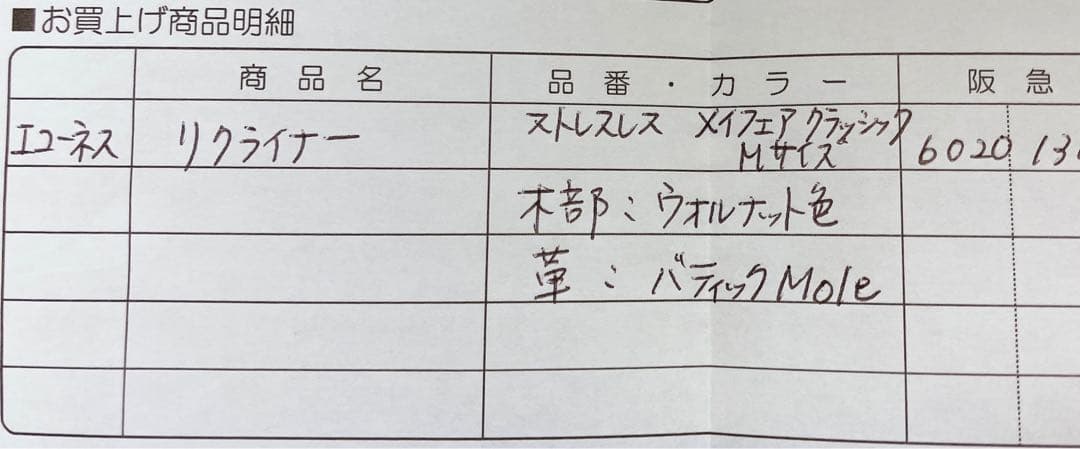 ■お買上げ商品明細
商品名 品番・カラー 阪急
エコーネス リクライナー ストレスレス メイフェア クラッシック 6020 13
Mサイズ
木部：ウォルナット色
革：バティックMole